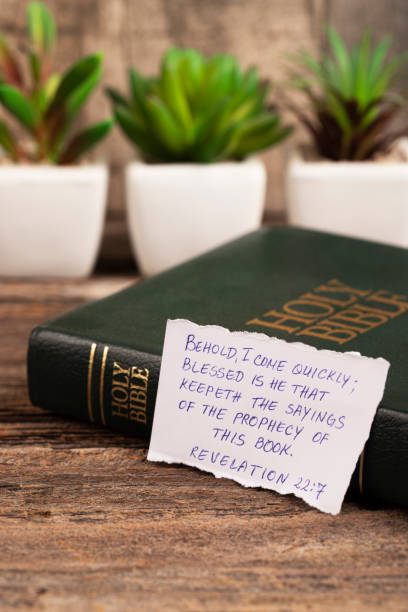 HOLY
BIBLE
HOLY
BIBLE
BEHOLD, I COME QUICKLY;
BLESSED IS HE THAT
KEEPETH THE SAYINGS
OF THE PROPHECY OF
THIS BOOK.
REVELATION 22:7